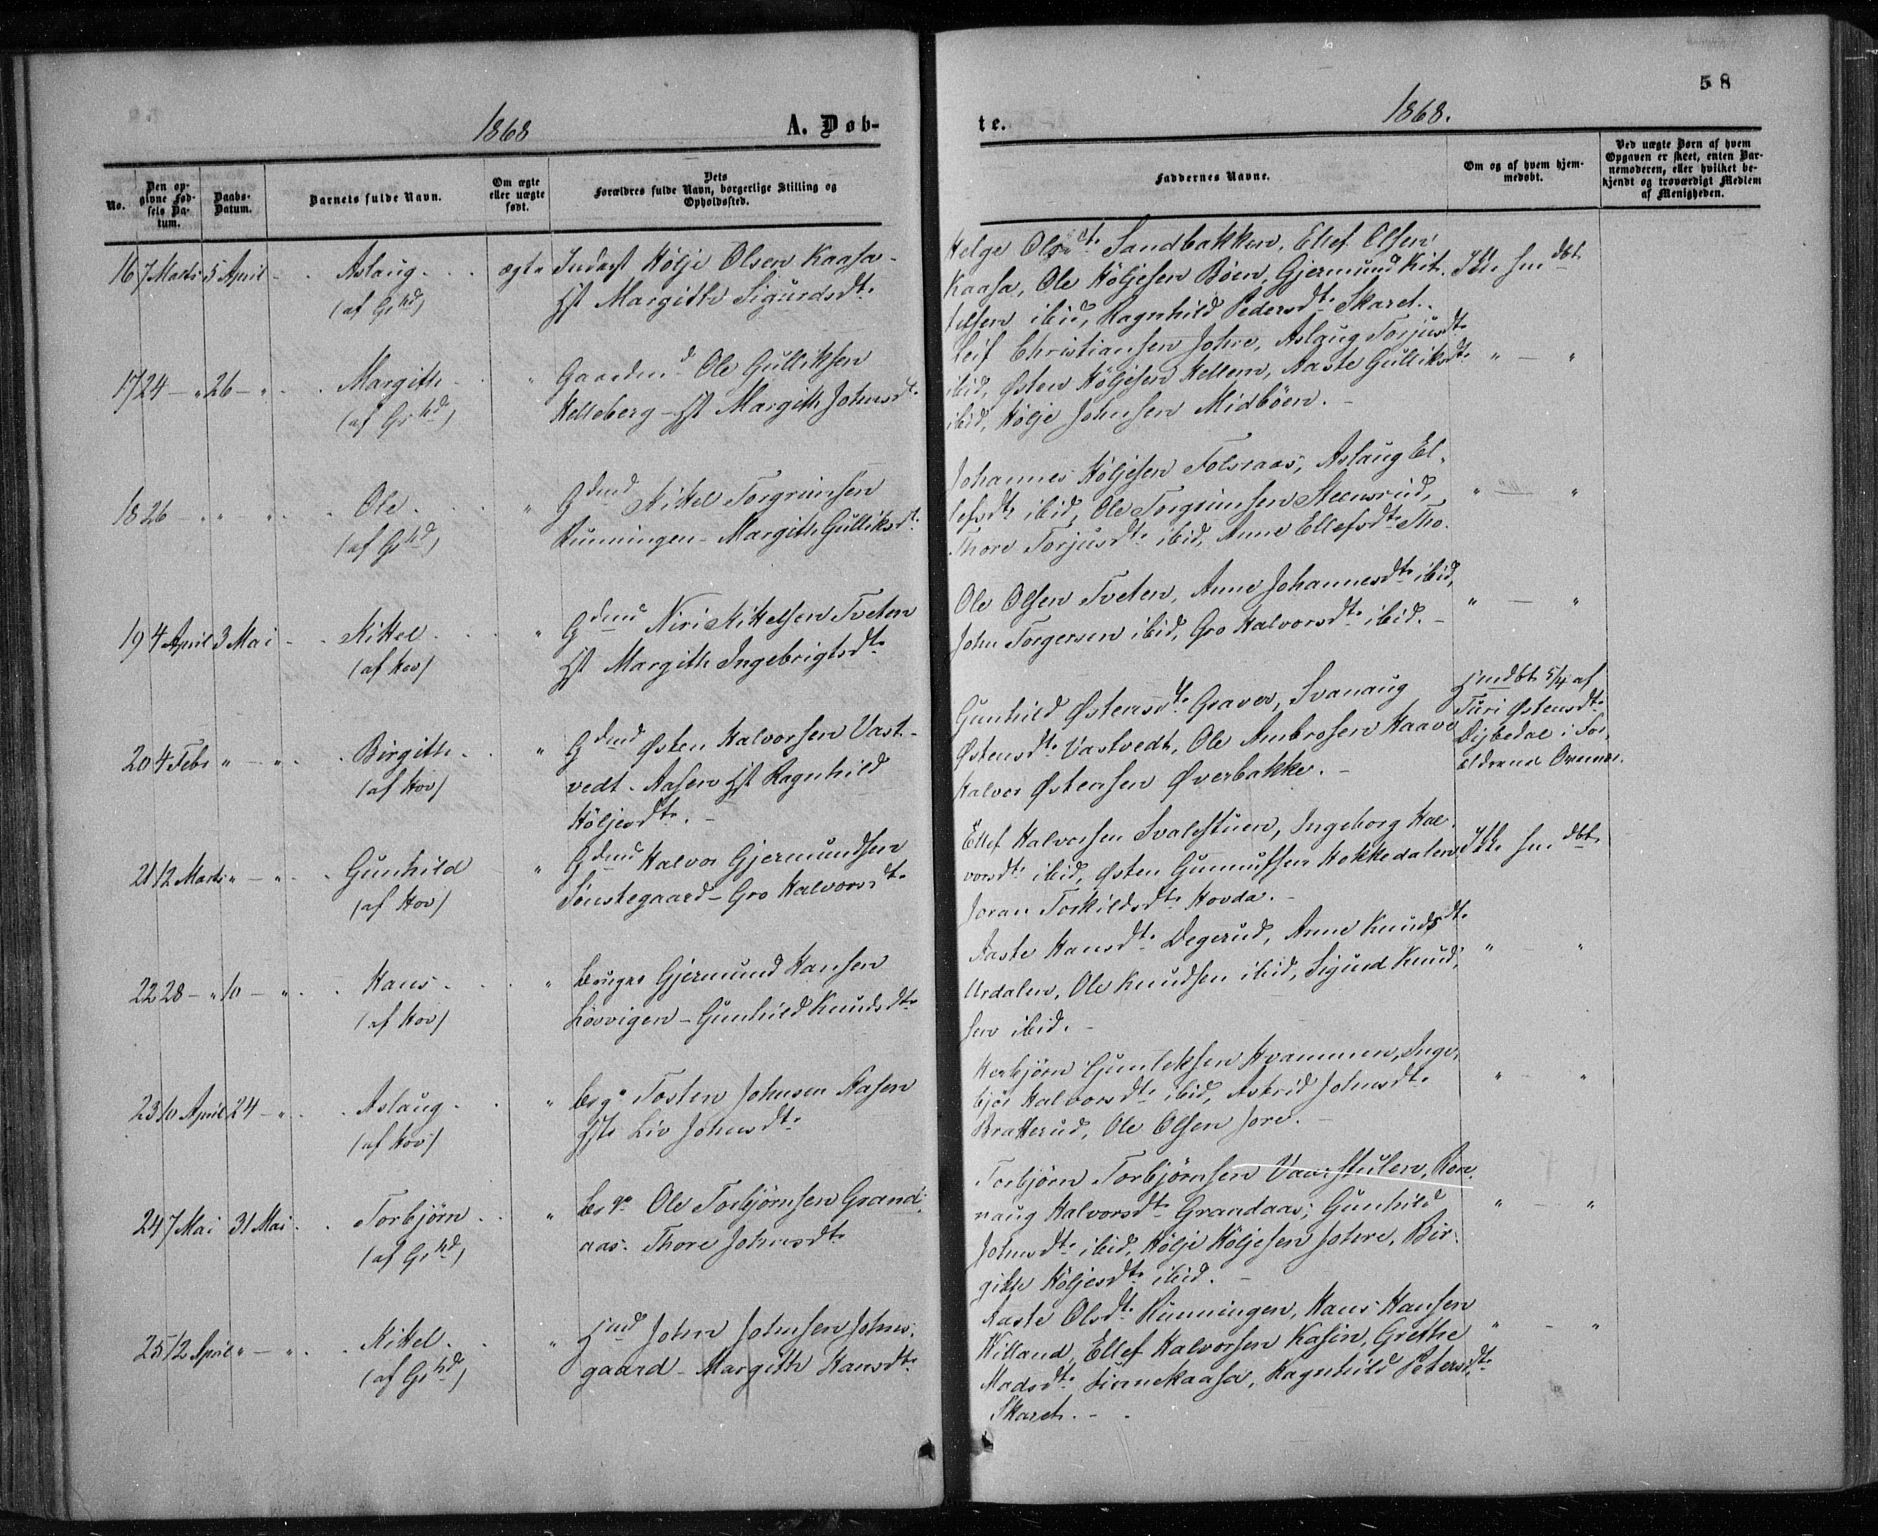 58
1868
A. Døb-
te.
1868.
No.
Den op-
givne Fød-
sels Da-
tum.
Daabs-
Datum.
Barnets fulde Navn.
Om ægte
eller uægte
født.
Dets
Forældres fulde Navn, borgerlige Stilling og
Opholdssted.
Faddernes Navne.
Om og af hvem hjem-
medøbt.
Ved uægte Børn af hvem
Opgaven er skeet, enten Bar-
nemoderen, eller hvilket be-
kjendt og troværdigt Medlem
af Menigheden.
16 7 Marts 5 April - Aslaug. ægte Inderst Hølje Olsen Kaasa -
(af Grhd) Hst Margith Sigurdsdt.
Helge Olsdt. Sandbakken, Ellef Olsen
Kaasa, Ole Høljesen Bøen, Gjermund Kit-
telsen ibid, Ragnhild Pedersdt. Skaret.
Ikke hmdbt
17 24 - " 26 - " Margith " Gaardmd Ole Gulliksen
(af Grhd) Helleberg - Hst Margith Johnsdt.
Leif Christiansen Johre, Aslaug Torjusdt.
ibid, Østen Høljesen Hellem, Aaste Gulliksdt.
ibid, Hølje Johnsen Midbøen. -
" - "
18 26 - " " - " Ole. " Gdmd Kittel Torgrimsen
(af Grhd) Runningen - Margith Gulliksdt.
Johannes Høljesen Folseraas, Aslaug El-
lefsdt. ibid, Ole Torgrimsen Steensrud,
Thore Torjusdt. ibid, Anne Ellefsdt. Tho.
" - "
19 4 April 3 Mai - Kittel. " Gdmd Niri Kittelsen Tveten
(af Hov) Hst Margith Ingebrigtsdt.
Ole Olsen Tveten, Anne Johannesdt. ibid,
John Torgersen ibid, Gro Halvorsdt. ibid. -
" - "
20 4 Febr " - " Birgith. " Gdmd Østen Halvorsen Vast-
(af Hov) vedt - Aasen Hst Ragnhild
Høljesdt. -
Gunhild Østensdt. Graver, Svanaug
Østensdt. Vastvedt, Ole Ambrosen Haave
Halvor Østensen Øverbakke. -
Hmdbt 5/4 af
Turi Østensdt.
i For-
ældrenes
21 12 Marts " - " Gunhild " Gdmd Halvor Gjermundsen
(af Hov) Sønstegaard - Gro Halvorsdt.
Ellef Halvorsen Svalestuen, Ingeborg Hal-
vorsdt. ibid, Østen Gunnufsen Høkkedalen
Joran Torkildsdt. Hovda. -
Ikke hmdbt
22 28 - " 10 - " Hans. " Bruger Gjermund Hansen
(af Hov) Løvvigen - Gunhild Knudsdt.
Aaste Hansdt. Degerud, Anne Knudsdt.
Urdalen, Ole Knudsen ibid, Sigurd Knud-
sen ibid. -
" - "
23 10 April 24 - " Aslaug. " Brgr Tosten Johnsen Aasen
(af Hov) Hst Liv Johnsdt.
Herbjørn Gunleksen Hvammen, Inge-
bjør Halvorsdt. ibid, Astrid Johnsdt.
Bratterud, Ole Olsen Jore. -
" - "
24 7 Mai 31 Mai - Torbjørn " Brgr Ole Torbjørnsen Grand-
(af Grhd) aas. Thore Johnsdt.
Torbjørn Torbjørnsen Vaarstulen, Ron-
naug Halvorsdt. Grandaas; Gunhild
Johnsdt. ibid, Hølje Høljesen Johre, Bir-
gitte Høljesdt. ibid. -
" - "
25 12 April " - " Kittel. " Hmd John Johnsen Johns-
(af Grhd) gaard - Margith Hansdt.
Aaste Olsdt. Runningen, Hans Hansen
Killand, Ellef Halvorsen Kasin, Grethe
Madsdt. Ragnhild Petersdt.
Skaret. -
" - "